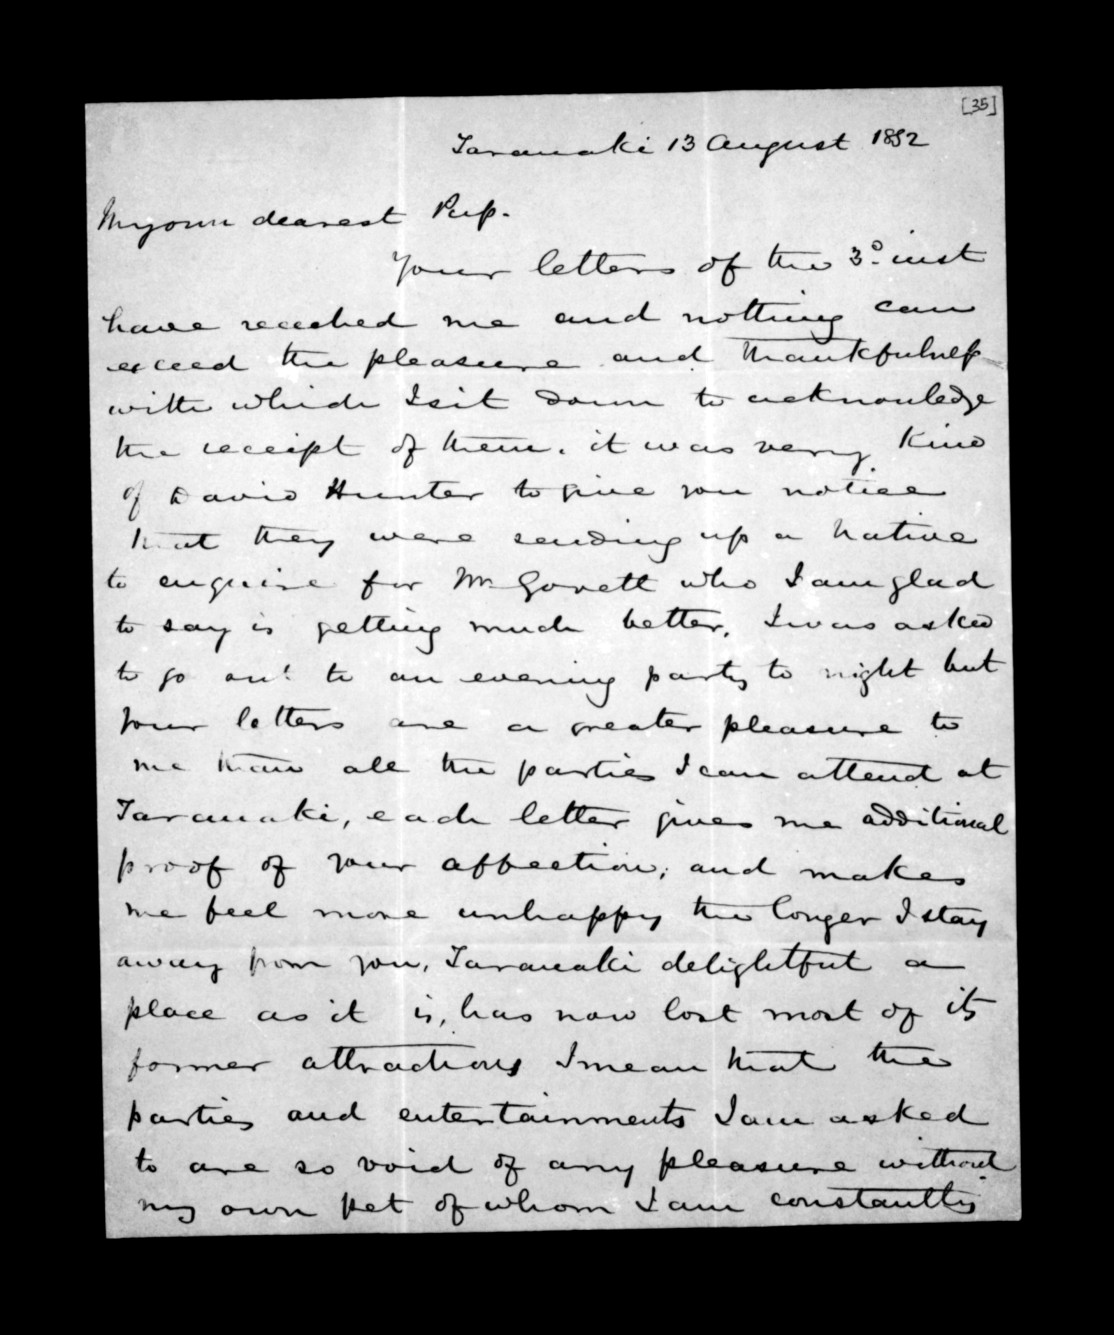 [35]
Taranaki 13 August 1852
My own dearest Pup.
Your letters of the 3d. inst
have reached me and nothing can
exceed the pleasure and thankfulness
with which I sit down to acknowledge
the receipt of them. it was very kind
of David Hunter to give you notice
that they were sending up a native
to enquire for Mr Govett who I am glad
to say is getting much better. I was asked
to go out to an evening party to night but
your letters are a greater pleasure to
me than all the parties I can attend at
Taranaki, each letter gives me additional
proof of your affection; and makes
me feel more unhappy the longer I stay
away from you, Taranaki delightful a
place as it is, has now lost most of its
former attractions I mean that the
parties and entertainments I am asked
to are so void of any pleasure without
my own pet of whom I am constantly